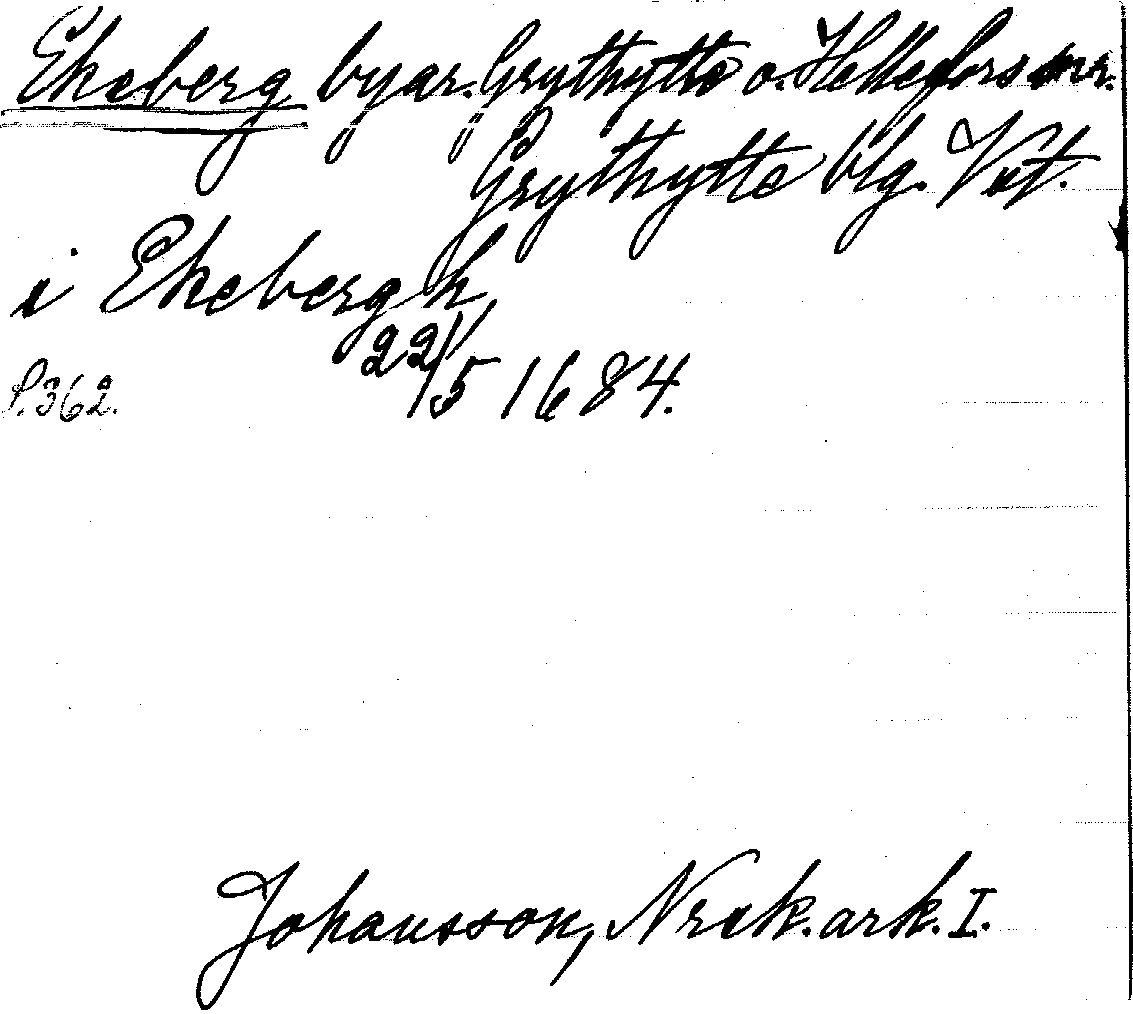 Ekeberg byar. Grythytte o. Hellefors snr.
Grythytte blg. Vstm.
i Ekeberg h,
22/5 1684.
P. 362.
Johansson, Nrak. ark. I.